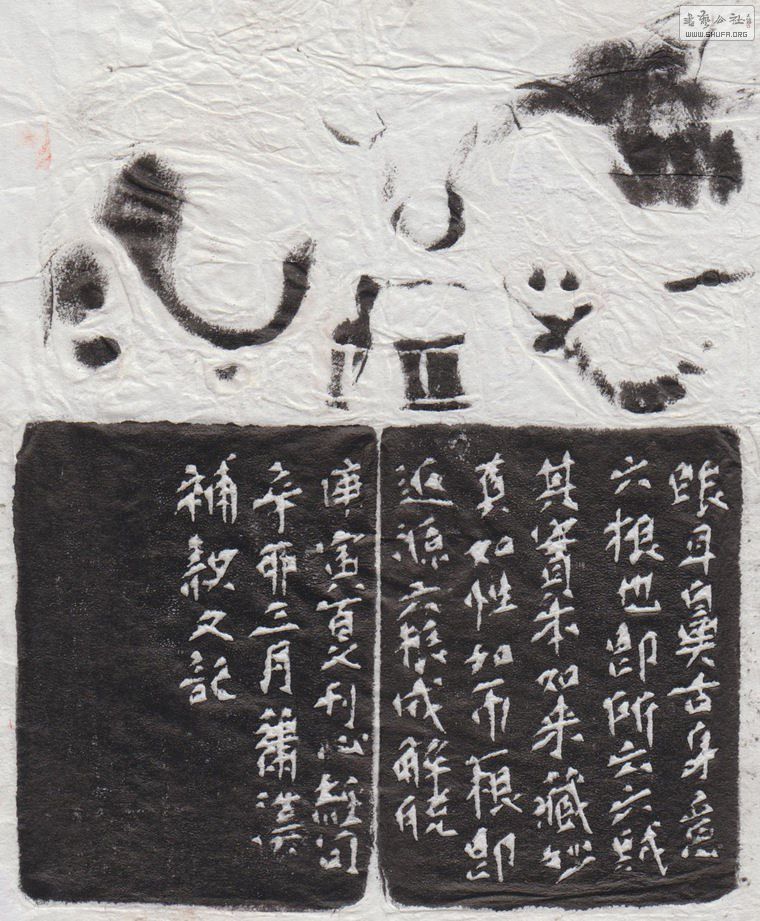 书艺公社
WWW.SHUFA.ORG
眼耳鼻舌身意
六根也即所云六賊
其實本如来藏妙
真如性如一根即
返源六根成解脱
庚寅夏刊心經句
辛卯三月蕭
補款又記